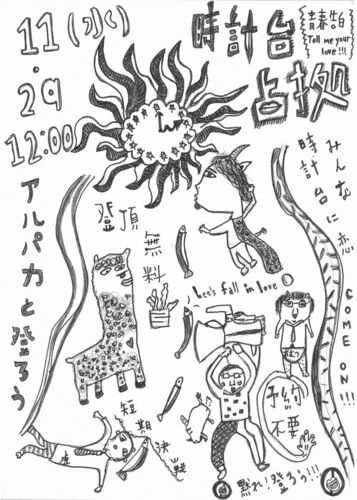 11(水)
・
29
12:00
時計台
占拠
青春告白
Tell me your
love!!!
みんなに恋
時計台に
COME ON!!!
アルパカと登ろう
登頂
無料
Let's fall in love
予約
不要
短期
決戦
黙れ!登ろう!!!